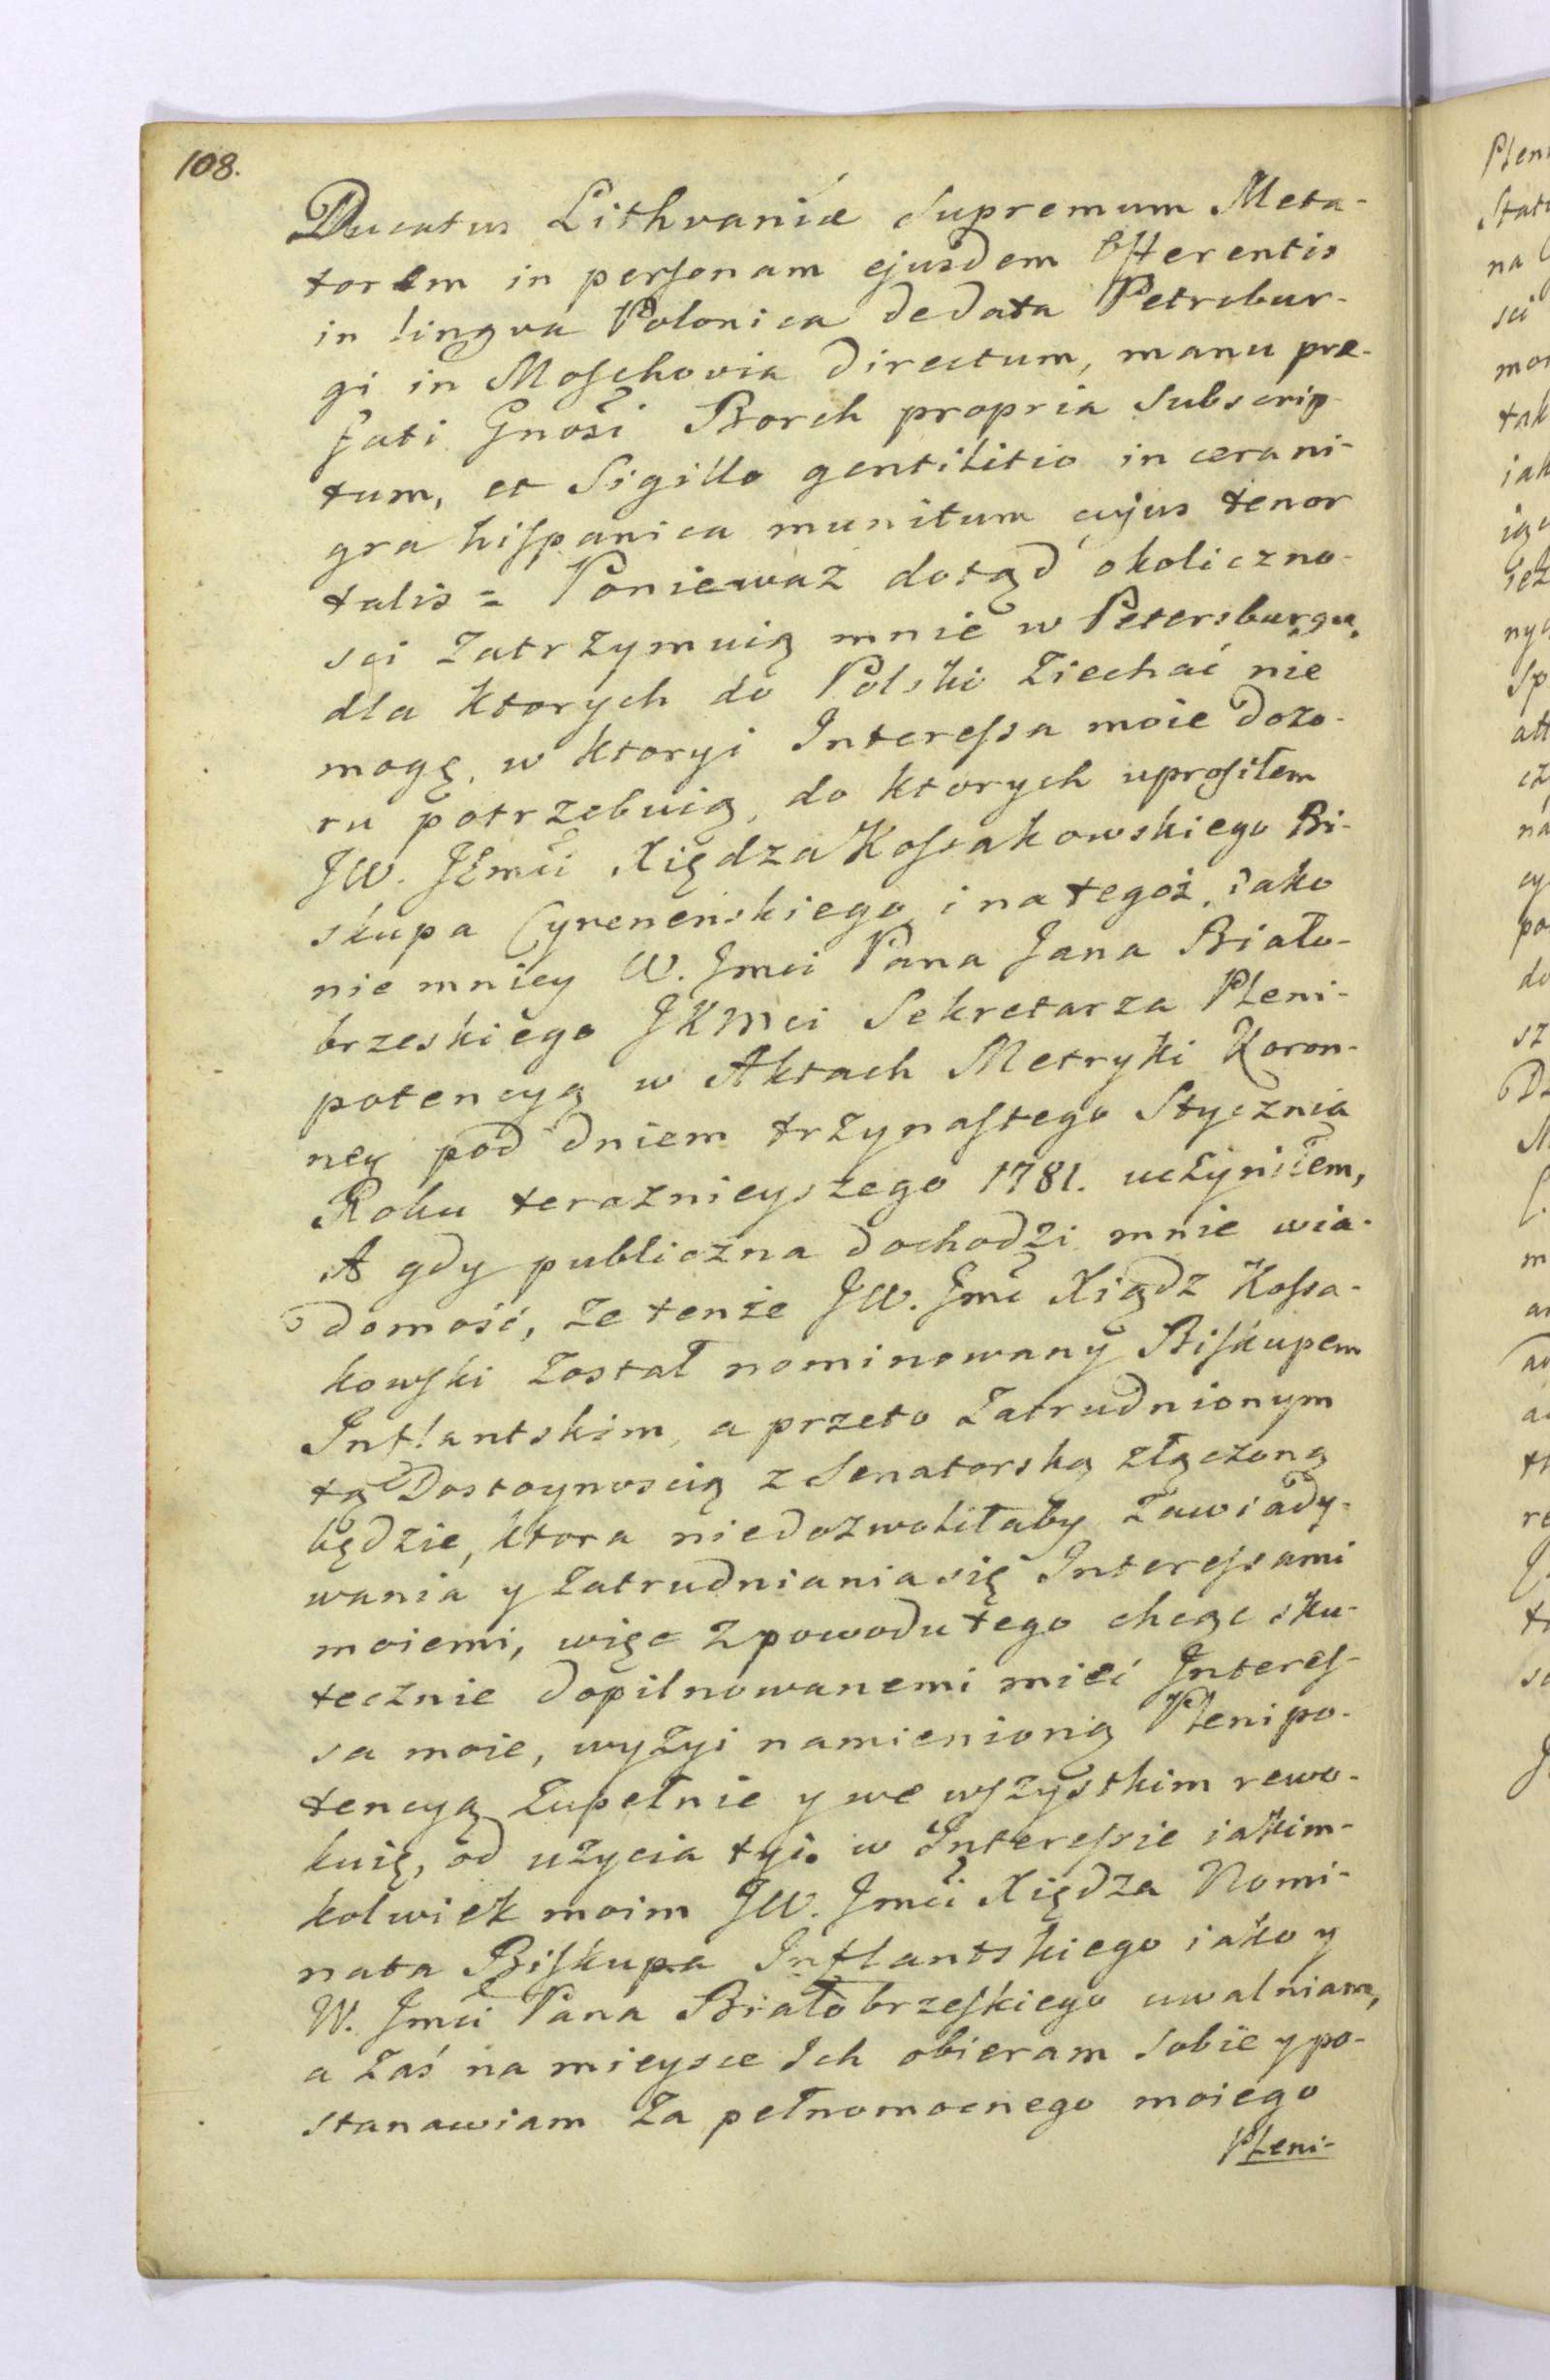 108.
Ducatus Lithvaniæ Supremum Meta-
torem in personam ejusdem Offerentis
in lingva Polonica dedata Petrobur-
gi in Moschovia directum, manu præ-
fati Gnosi Borch propria Subscrip-
tum, et Sigillo gentilitio in cera ni-
gra hispanica munitum cujus tenor
talis = Ponieważ dotąd okoliczno-
sci zatrzymuią mnie w Petersburgu,
dla ktorych do Polski ziechać nie
mogę, w ktoryi Interessa moie dozo-
ru potrzebuią, do ktorych uprosiłem
JW. JXmci Xiędza Kossakowskiego Bi-
skupa Cyreneńskiego, i na tegoż, iako
nie mniey W. Jmci Pana Jana Biało-
brzeskiego JKMci Sekretarza Pleni-
potencyą w Aktach Metryki Koron-
ney pod dniem trzynastego Stycznia
Roku teraznieyszego 1781. uczyniłem,
A gdy publiczna dochodzi mnie wia-
domość, że tenże JW. Jmć Xiądz Kossa-
kowski został nominowany Biskupem
Inflantskim, a przeto zatrudnionym
tą Dostoynoscią z Senatorską złączoną
będzie, ktora niedozwoliłaby zawiady-
wania y zatrudniania się Interessami
moiemi, więc z powodu tego chcąc sku-
tecznie dopilnowanemi mieć Interes-
sa moie, wyżyi namienioną Plenipo-
tencyą zupełnie y we wszystkim rewo-
kuię, od użycia tyi w Interessie iakim-
kolwiek moim JW. Jmci Xiędza Nomi-
nata Biskupa Inflantskiego iako y
W. Jmci Pana Białobrzeskiego uwalniam,
a zaś na mieysce Ich obieram sobie y po-
stanawiam za pełnomocnego moiego
Pleni-